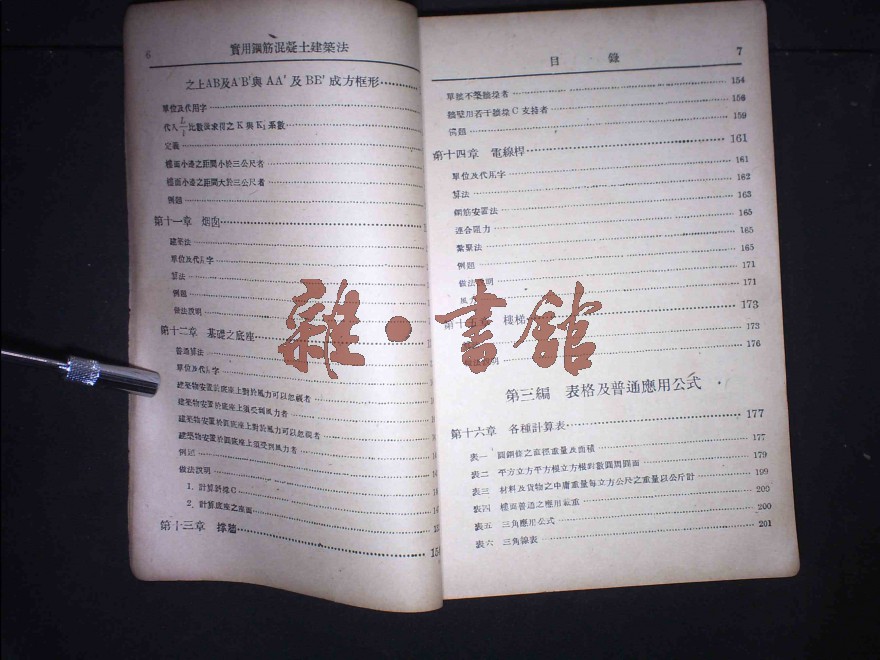 6
實用鋼筋混凝土建築法
之上AB及A'B'與 AA' 及 BE' 成方框形
單位及代用字
代入 L/l 比數圖求得之 K 與 K₁ 系數
定義
樓面小邊之距間小於三公尺者
樓面小邊之距間大於三公尺者
例題
第十一章 烟囱
建築法
單位及代用字
算法
例題
做法說明
第十二章 基礎之底座
普通算法
單位及代用字
建築物安置於底座上對於風力可以忽視者
建築物安置於底座上須受到風力者
建築物安置於圓底座上對於風力可以忽視者
建築物安置於圓底座上須受到風力者
例題
做法說明
1. 計算斜線 C
2. 計算底座之座面
第十三章 擋牆
目錄
7
單純不築擋垛者 154
擋壁用若干擋垛 C 支持者 156
例題 159
第十四章 電線桿 161
單位及代用字 161
算法 162
鋼筋安置法 163
連合阻力 165
紮緊法 165
例題 165
做法說明 171
風力 171
第十五 樓梯 173
173
說明 176
第三編 表格及普通應用公式
第十六章 各種計算表 177
表一 圓鋼條之直徑重量及面積 177
表二 平方立方平方根立方根對數圓周圓面 179
表三 材料及貨物之中庸重量每立方公尺之重量以公斤計 199
表四 樓面普通之應用載重 200
表五 三角應用公式 200
表六 三角線表 201
雜·書館